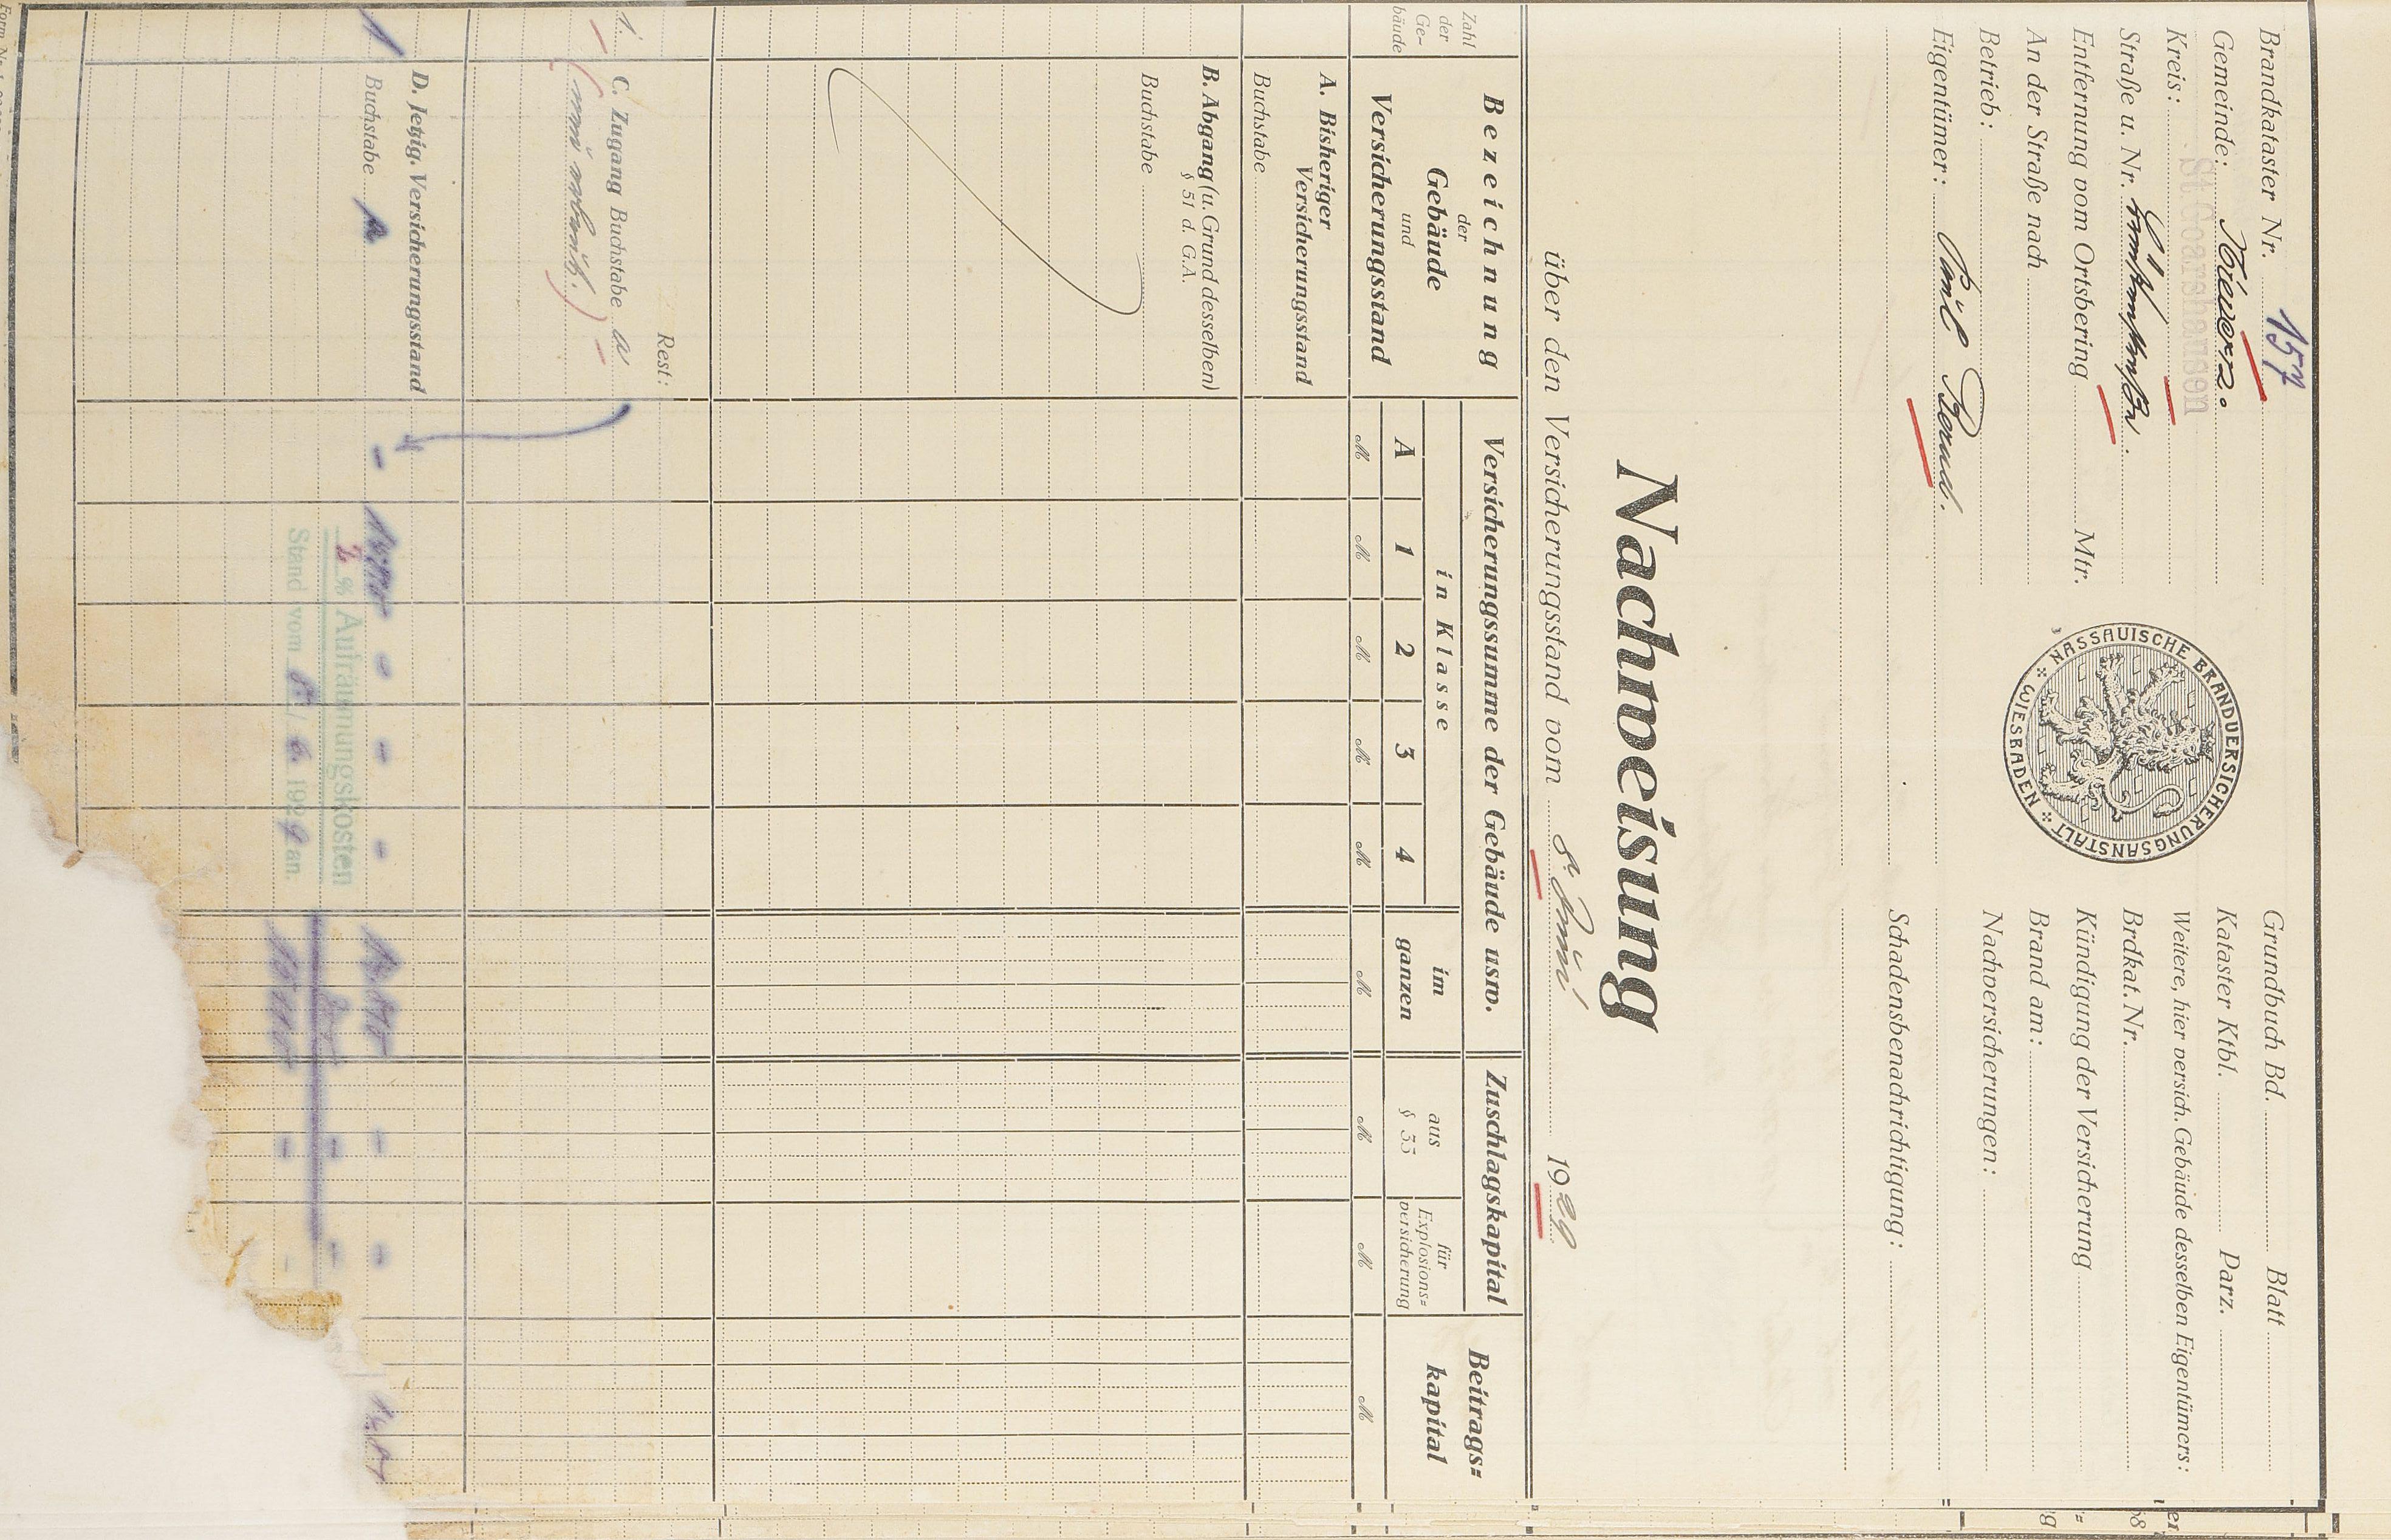 Brandkataster Nr. 157
Gemeinde: Nievern.
Kreis: St Goarshausen
Straße u. Nr.
Entfernung vom Ortsbering Mtr.
An der Straße nach
Betrieb:
Eigentümer:
NASSAUISCHE BRANDVERSICHERUNGSANSTALT
WIESBADEN
Grundbuch Bd. Blatt
Kataster Ktbl. Parz.
Weitere, hier versich. Gebäude desselben Eigentümers:
Brdkat. Nr.
Kündigung der Versicherung
Brand am:
Nachversicherungen:
Schadensbenachrichtigung:
Nachweisung
über den Versicherungsstand vom 8. Juni 1929
Zahl der Ge-bäude
Bezeichnung
der
Gebäude
und
Versicherungsstand
Versicherungssumme der Gebäude usw.
in Klasse
A 1 2 3 4
im ganzen
Zuschlagskapital
aus § 33
für Explosions=versicherung
Beitrags=kapital
M M M M M M M M M
A. Bisheriger Versicherungsstand
Buchstabe
B. Abgang (u. Grund desselben)
§ 51 d. G.A.
Buchstabe
Rest:
1. C. Zugang Buchstabe a
D. Jetzig. Versicherungsstand
1 Buchstabe
2 % Aufräumungskosten
Stand vom 8. / 6. 1929 an.